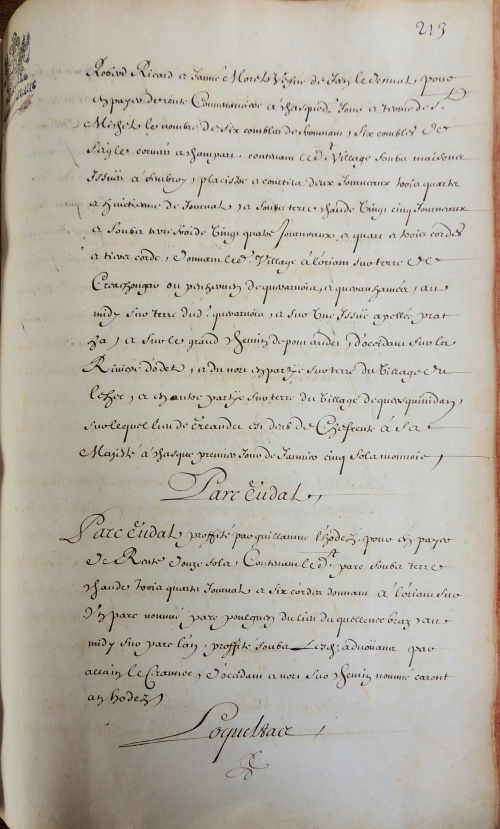 213
Robert Ricard et Janne Moret veufve de Jan le Denmat, pour
en payer de rente Convenanciere a chasque d. Jour et terme de St
Michel le nombre de six combles de fromant, six combles de
seigle comune a champart, contenant led.t village soubz maisons
Issües et ... placistre et courtils deux Journeaux trois quarts
et huictiesme de Journal, et soubz terre chaude vingt cinq Journeaux
et soubz terre froide vingt quatre Journeaux et quart et trois cordes
et tiers corde, donnant led. village a l'oriant sur terre de
... ou penhoüen de quevarnoia, et quevanhaméa, au
midy sur terre dud. quevarnoia, et sur une Issüe apellée prat
..., et sur le grand chemin de pont ander, d'occidant sur la
Riviere d'odet, et du nort en partye sur terre du village du
Lehec, et en autre partye sur terre du village de quesquividan,
sur lequel lieu de creander est deub de Cheferente à sa
Majesté à chasque premier Jour de Janvier cinq sols monnoie,
Parc Eüdal,
Parc Eüdal proffité par guillaume l'hodez pour en payer
de Rente douze sols, Contenant led.t parc soubz terre
chaude trois quarts Journal et six cordes donnant a l'oriant sur
un parc nommé parc poulguen du lieu du quellenec braz, au
midy sur parc lan, proffité soubz Lesd. advoüants par
allain le Crannec, d'occidant et nort sur chemin nommé caront
an hodez,
Loqueltas